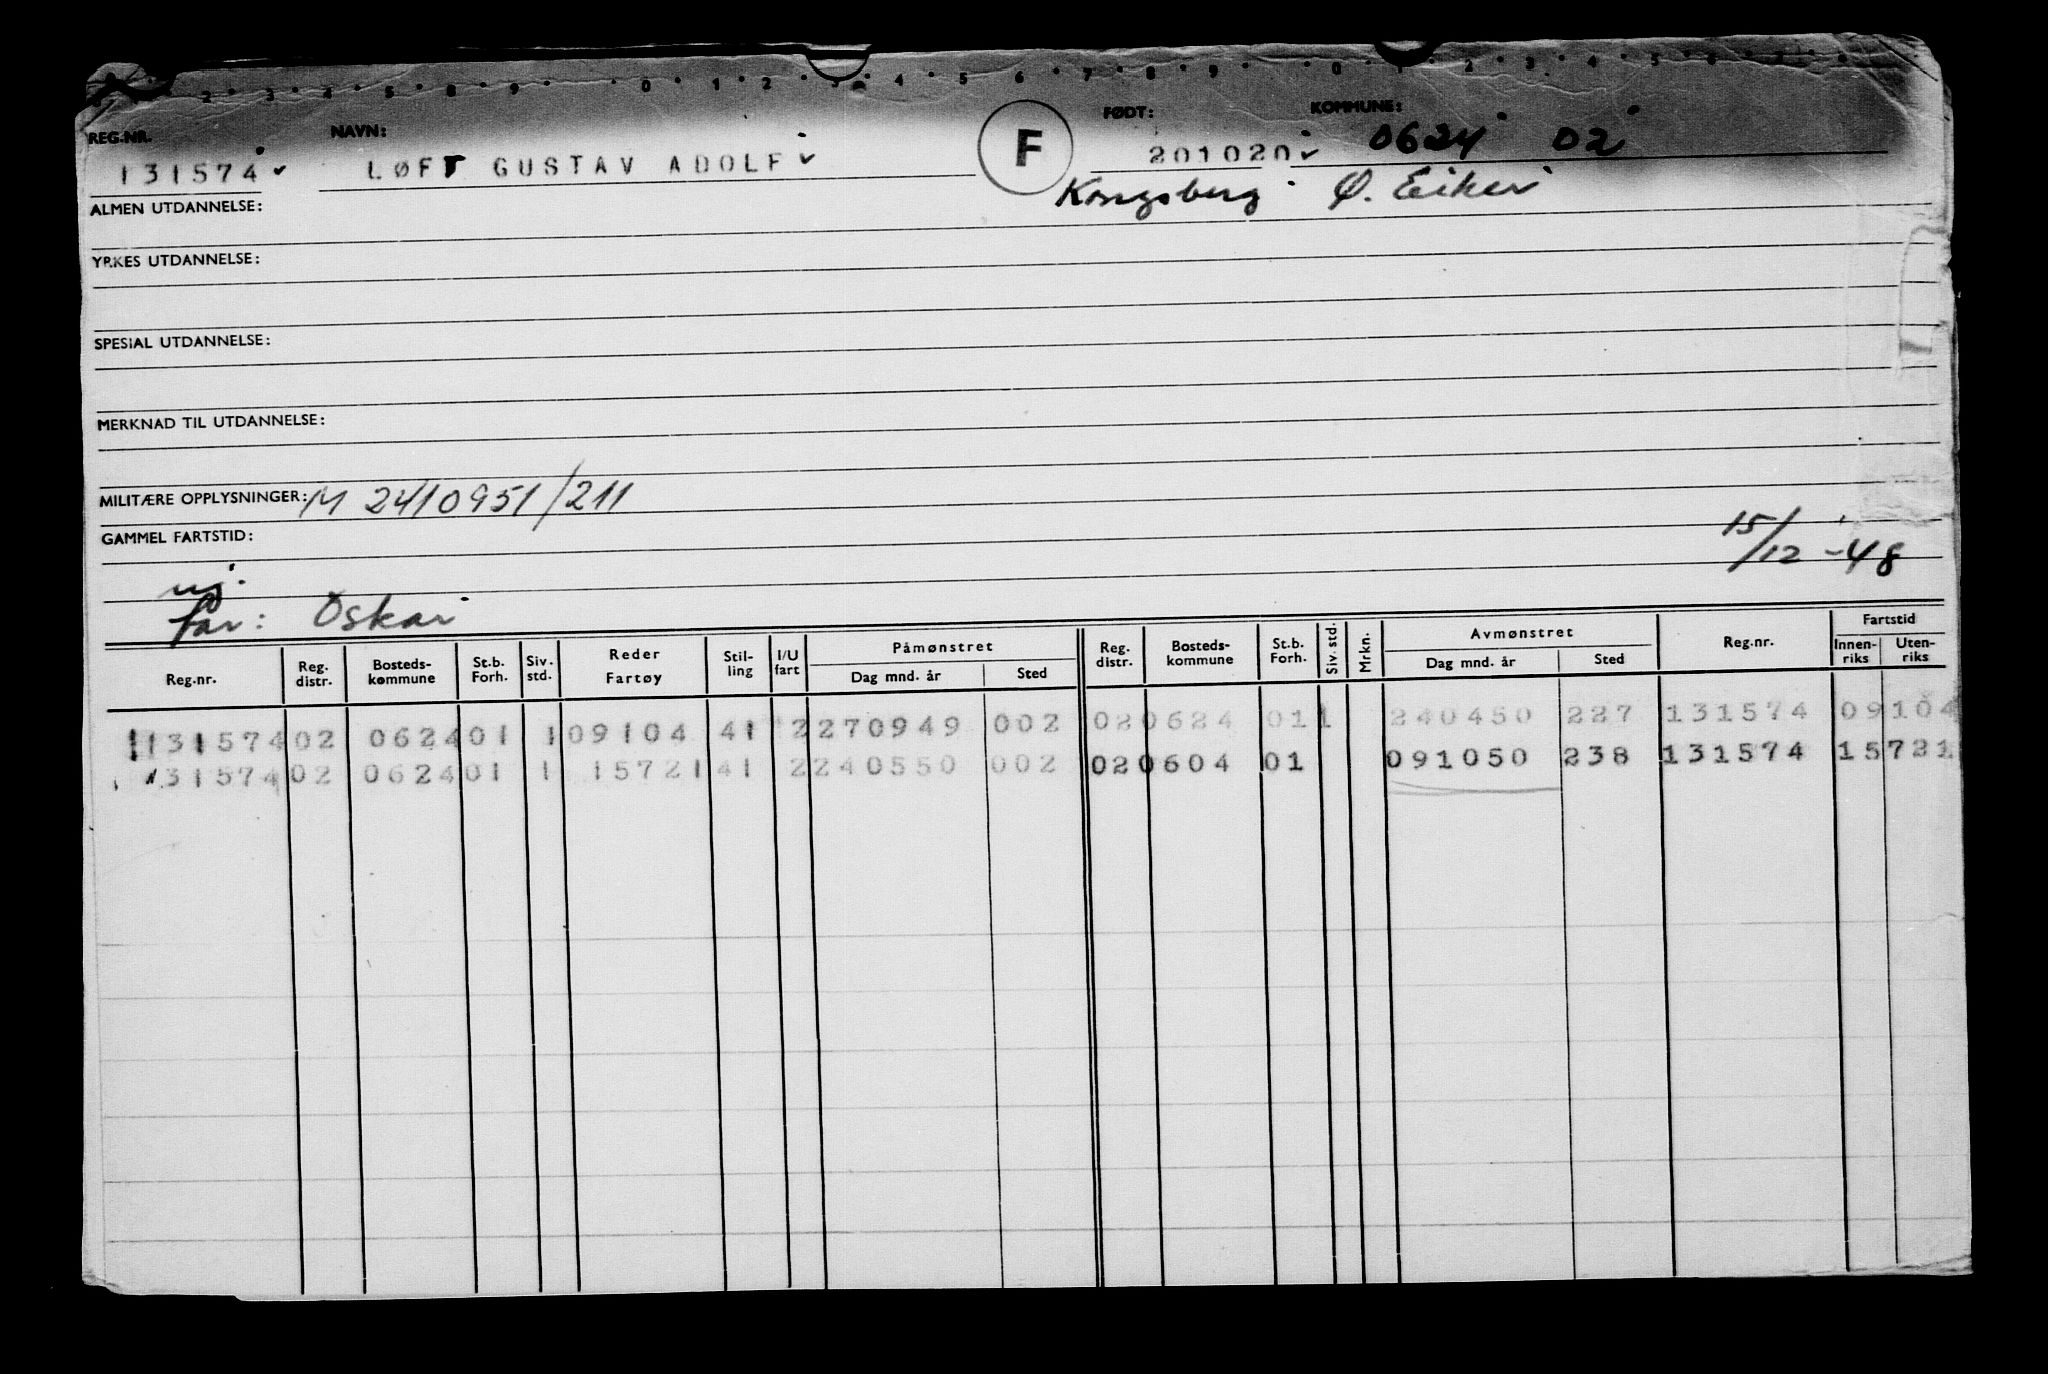 2 3 4 5 8 9 0 1 2 3 4 5 6 7 8 9 0 1 2 3 4 5 6 7 8
REG.NR. NAVN: F FØDT: KOMMUNE:
131574 LØFT GUSTAV ADOLF 201020 0624 02
Kongsberg Ø. Eiker
ALMEN UTDANNELSE:
YRKES UTDANNELSE:
SPESIAL UTDANNELSE:
MERKNAD TIL UTDANNELSE:
MILITÆRE OPPLYSNINGER: M 2410951/211
GAMMEL FARTSTID: 15/12-48
ug.
far: Oskar
Reg.nr. Reg. distr. Bosteds-kommune St.b. Forh. Siv. std. Reder Fartøy Stil-ling I/U fart Påmønstret Dag mnd. år Sted Reg. distr. Bosteds-kommune St.b. Forh. Siv. std. Mrkn. Avmønstret Dag mnd. år Sted Reg.nr. Fartstid Innen-riks Uten-riks
131574 02 0624 01 1 09104 41 2 270949 002 02 0624 01 1 240450 227 131574 09104
131574 02 0624 01 1 15721 41 2 240550 002 02 0604 01 091050 238 131574 15721